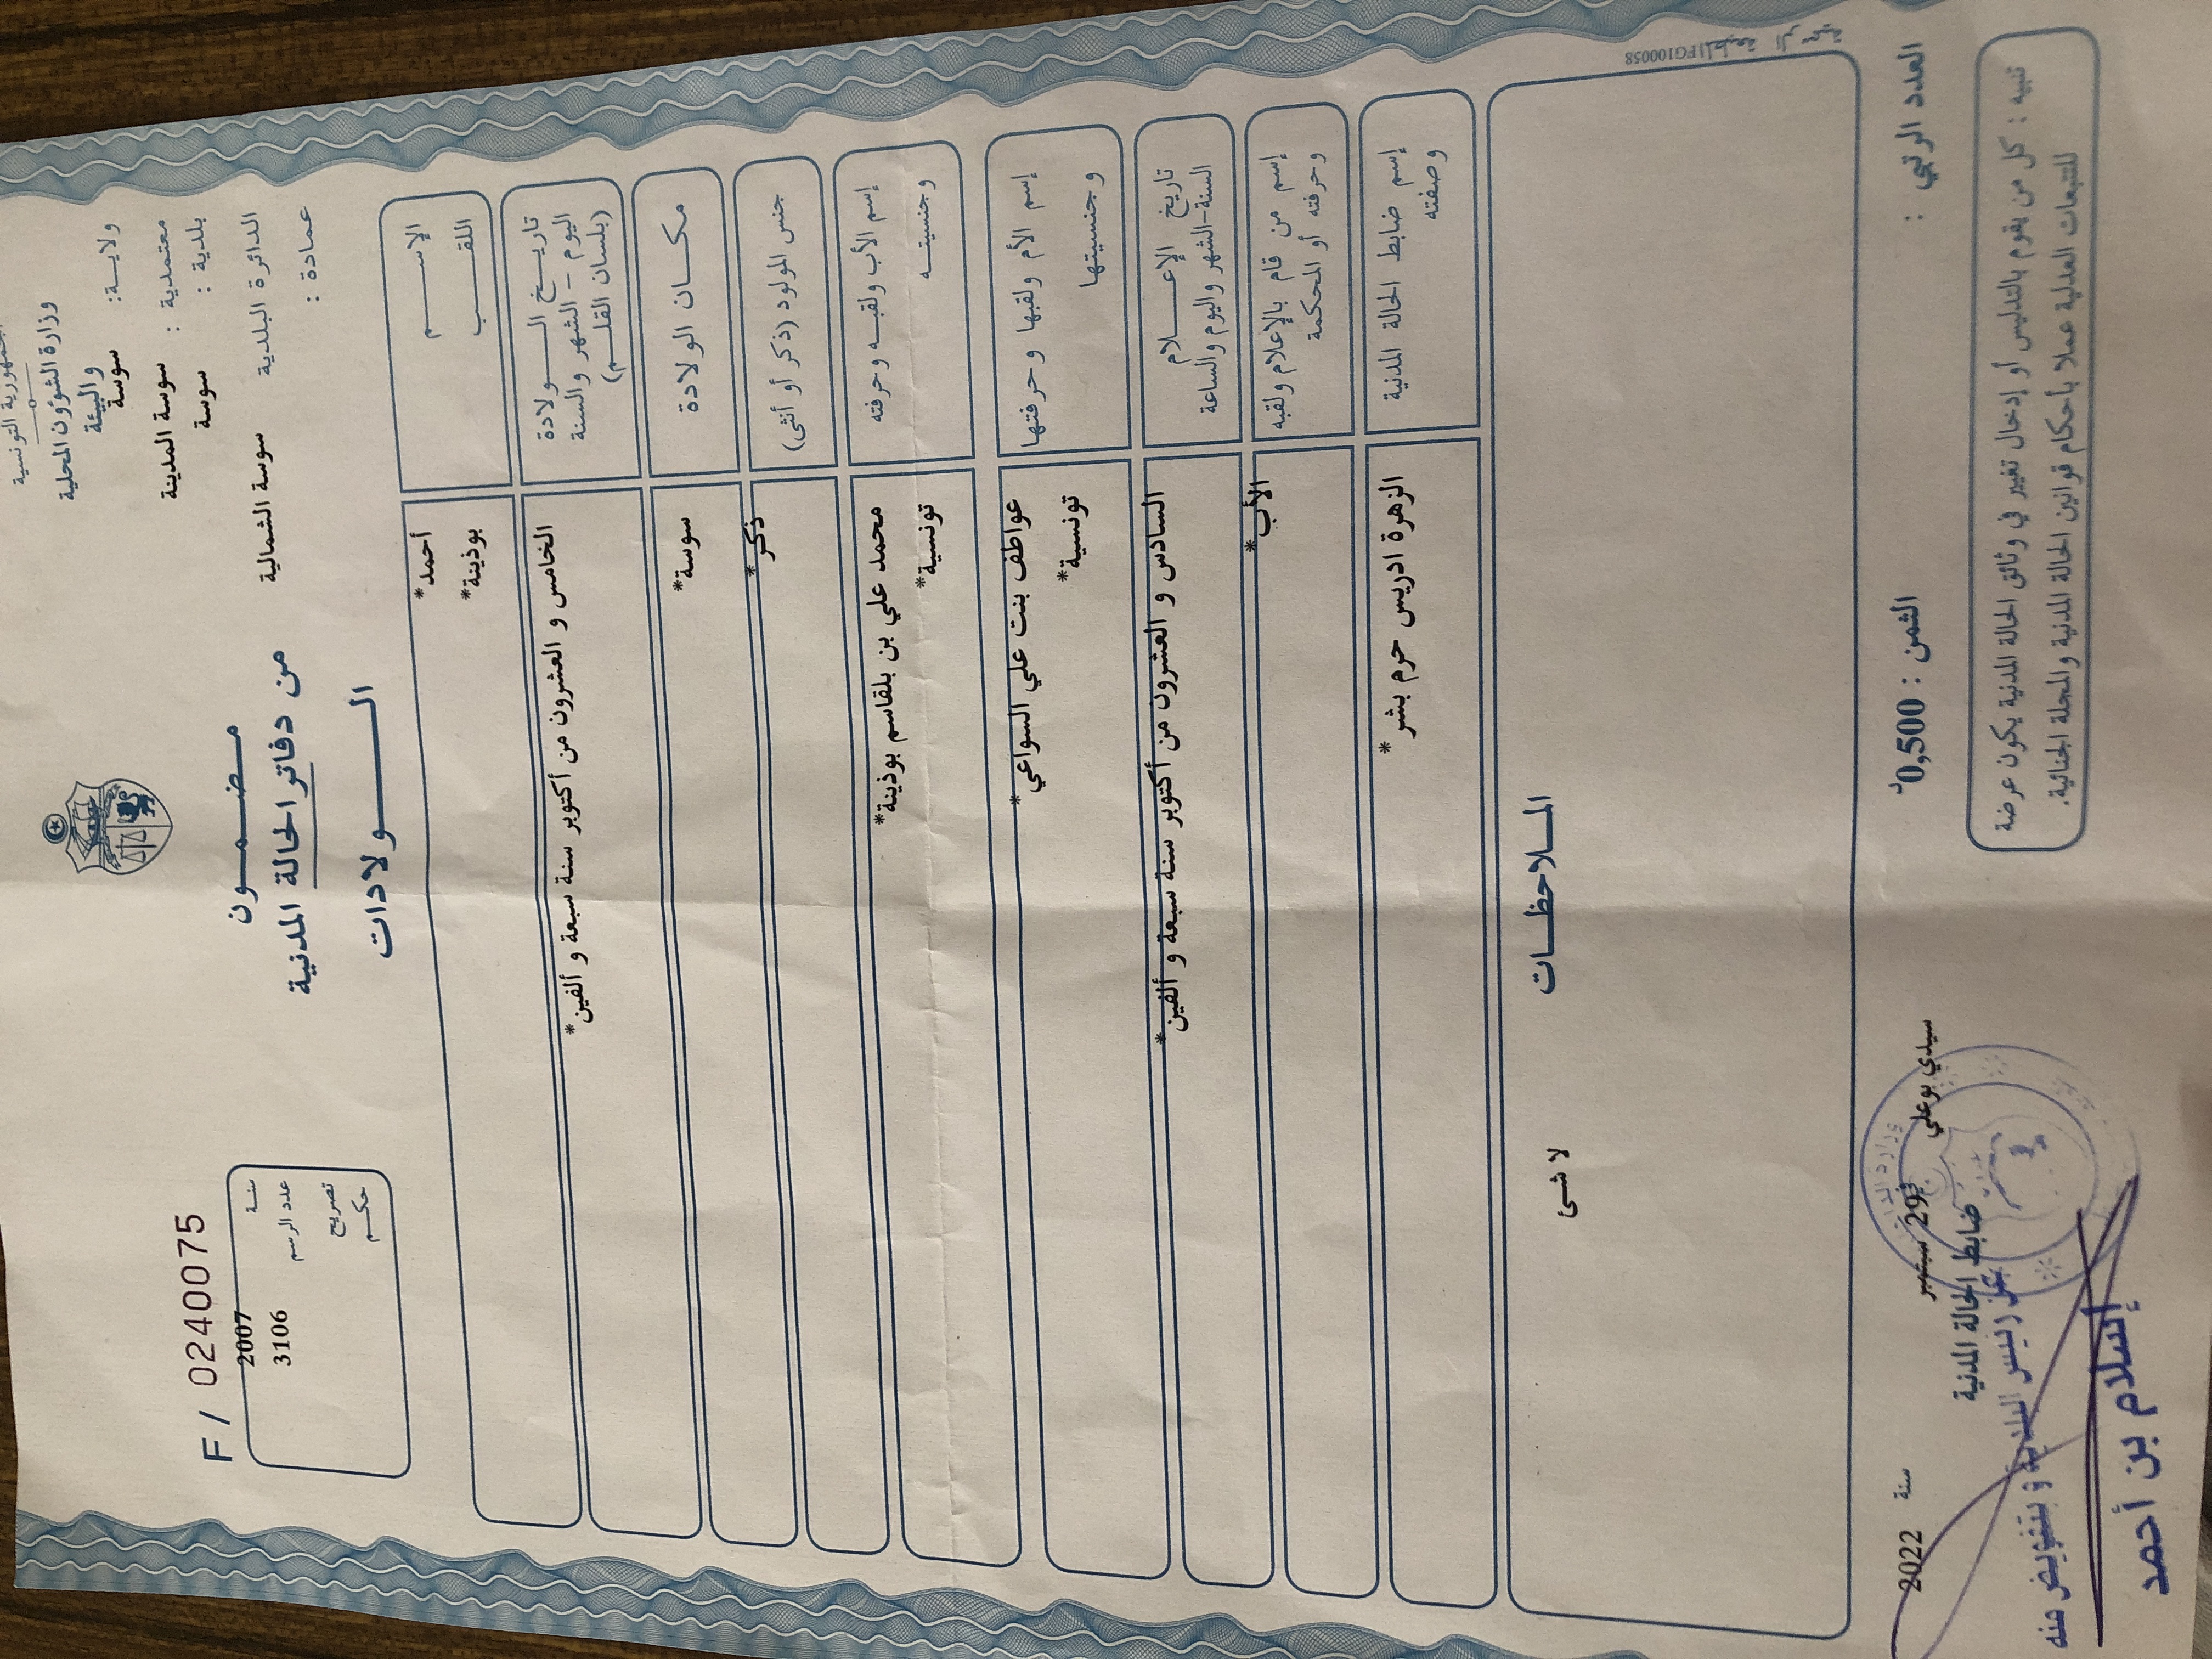 الجمهورية التونسية
وزارة الشؤون المحلية
والبيئة
ولايـة: سوسة
معتمدية : سوسة المدينة
بلدية : سوسة
الدائرة البلدية سوسة الشمالية
عمادة :
مـضـمـون
من دفاتر الحالة المدنية
الـولادات
F / 02400075
سنـة 2007
عدد الرسم 3106
تصريح
حكـم
الإسـم أحمد*
اللقـب بوذينة*
تاريـخ الـولادة
اليوم - الشهر والسنة
(بلسان القلـم)
الخامس و العشرون من أكتوبر سنة سبعة و ألفين*
مكـان الولادة سوسة*
جنس المولود (ذكر أو أنثى) ذكر*
إسم الأب ولقبـه وحرفته محمد علي بن بلقاسم بوذينة*
وجنسيتـه تونسية*
إسم الأم ولقبها وحرفتها عواطف بنت علي السواعي*
وجنسيتها تونسية*
تاريخ الإعـلام
السنة-الشهر واليوم والساعة
السادس و العشرون من أكتوبر سنة سبعة و ألفين*
إسم من قام بالإعلام ولقبه
وحرفته أو المحكمة
الأب*
إسم ضابط الحالة المدنية
وصفته
الزهرة ادريس حرم بشر*
المـلاحظـات
لا شئ
FG100058
العدد الرتبي :
الثمن : 0,500د
سيدي بوعلي في 29 سبتمبر سنة 2022
ضابط الحالة المدنية
عن رئيس البلدية و بتفويض منه
إسلام بن أحمد
تنبيه : كل من يقوم بالتدليس أو إدخال تغيير في وثائق الحالة المدنية يكون عرضة
للتتبعات العدلية عملا بأحكام قوانين الحالة المدنية والمجلة الجنائية.